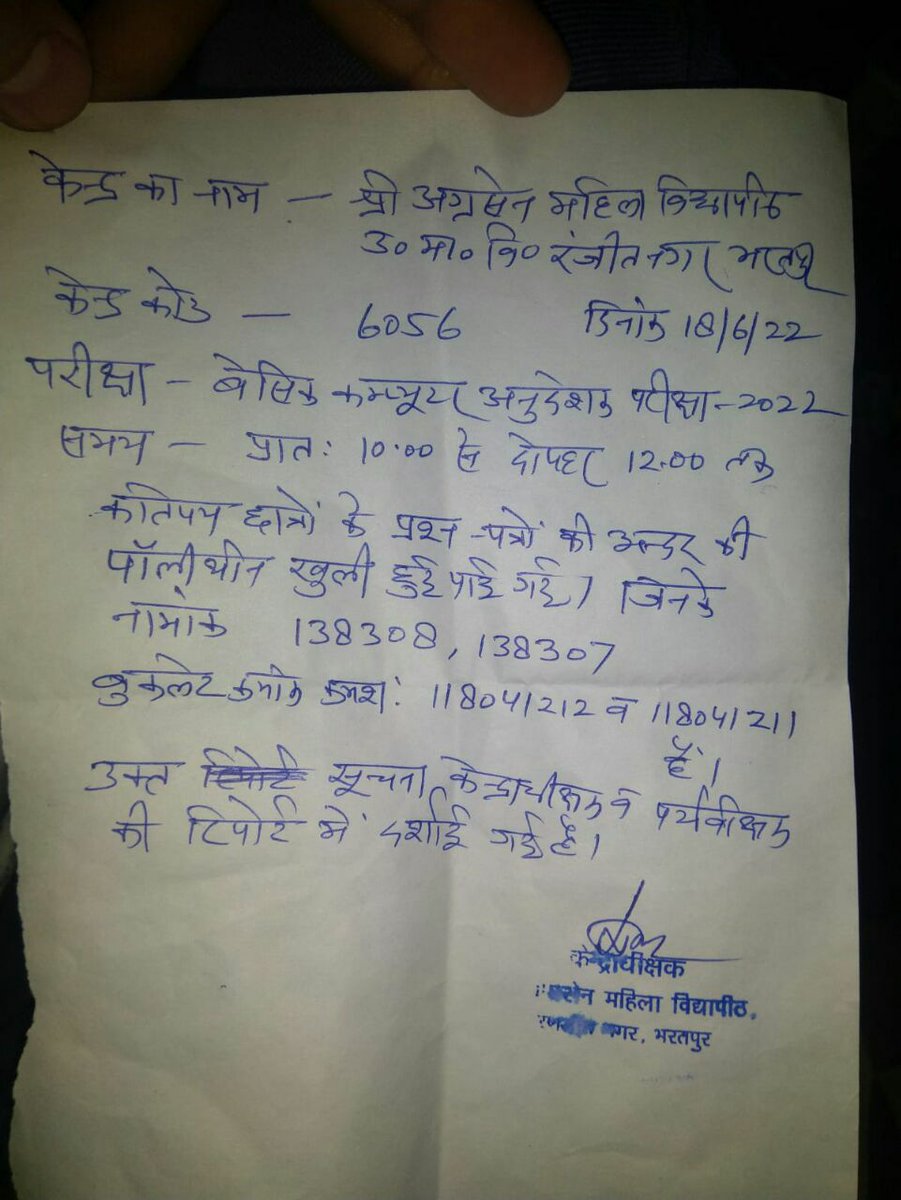 केन्द्र का नाम – श्री अग्रसेन महिला विद्यापीठ
उ० मा० वि० रंजीत नगर भरतपुर
केन्द्र कोड – 6056 दिनांक 18/6/22
परीक्षा – बेसिक कम्प्यूटर अनुदेशक परीक्षा-2022
समय – प्रातः 10.00 से दोपहर 12.00 तक
कतिपय छात्रों के प्रश्न-पत्रों की अन्दर की
पॉलीथीन खुली हुई पाई गई। जिनके
नामांक 138308, 138307
बुकलेट क्रमांक क्रमशः 118041212 व 118041211
हैं।
उक्त सूचना केन्द्राधीक्षक व पर्यवीक्षक
की रिपोर्ट में दर्शाई गई है।
केन्द्राधीक्षक
सेन महिला विद्यापीठ,
नगर, भरतपुर